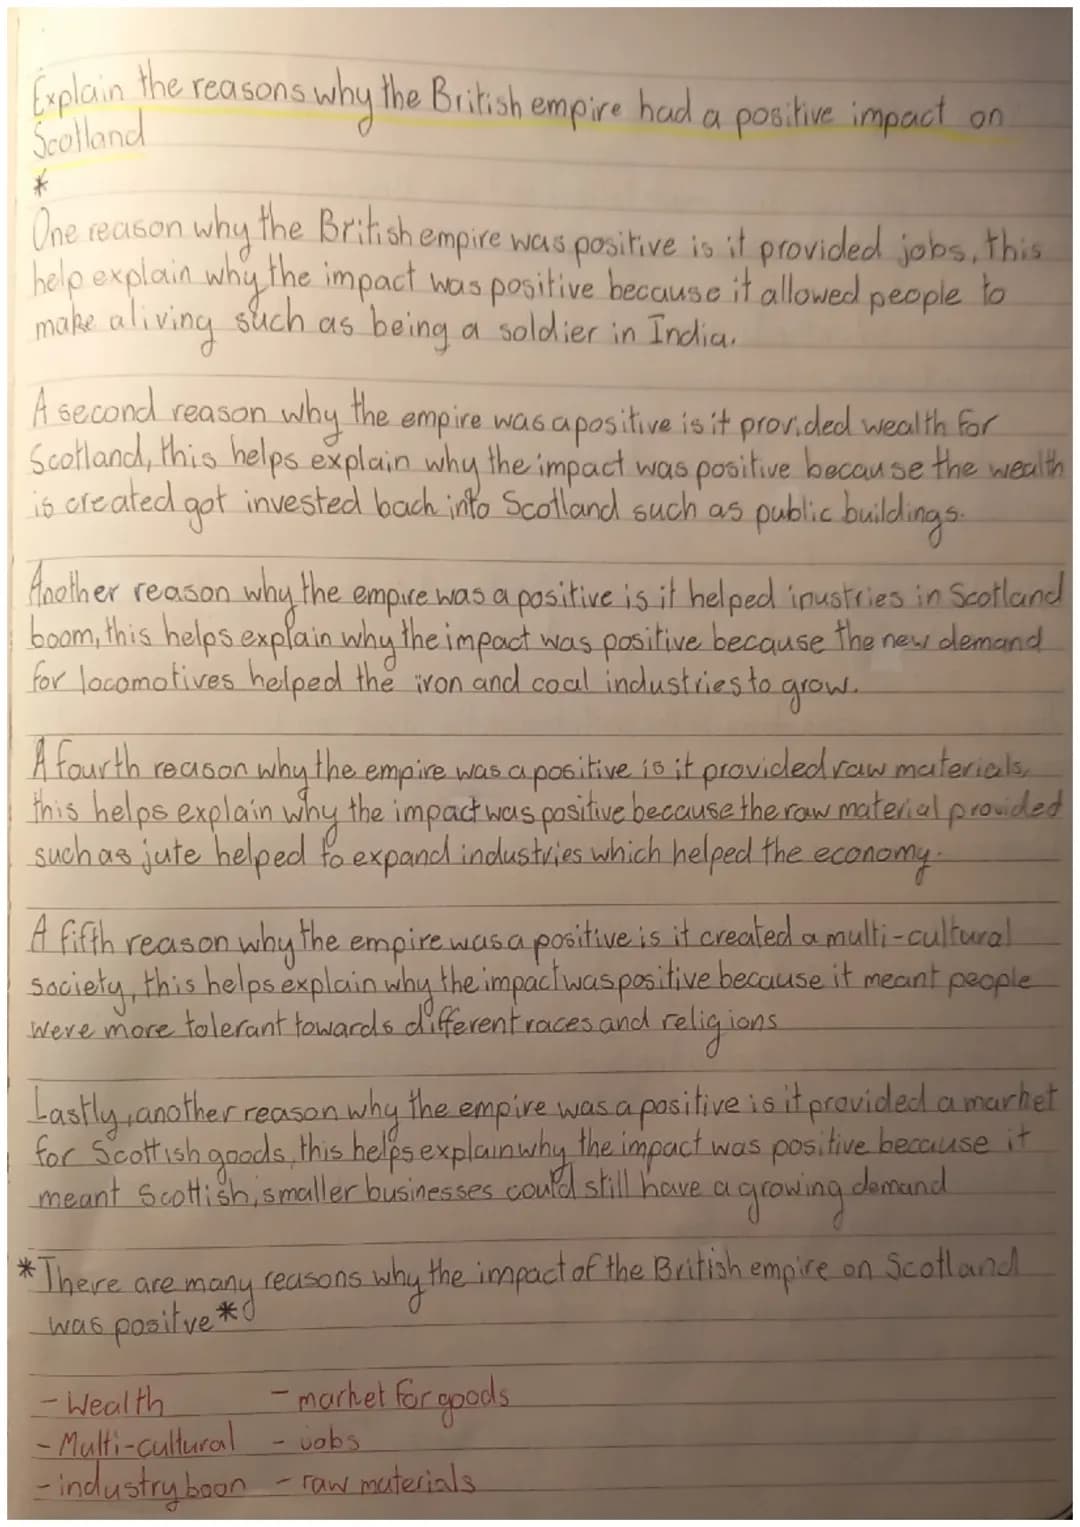 Explain the reasons why the British empire had a positive impact on
Scotland
*
One reason why the British empire was positive is it provided jobs, this
help explain why the impact was positive because it allowed people to
make a living such as being a soldier in India.
A second reason why the empire was a positive is it provided wealth for
Scotland, this helps explain why the impact was positive because the wealth
is created got invested back into Scotland such as public buildings.
Another reason why the empire was a positive is it helped inustries in Scotland
boom, this helps explain why the impact was positive because the new demand
for locomotives helped the iron and coal industries to grow.
A fourth reason why the empire was a positive is it provided raw materials,
this helps explain why the impact was positive because the raw material provided
such as jute helped to expand industries which helped the economy.
A fifth reason why the empire was a positive is it created a multi-cultural
society, this helps explain why the impact was positive because it meant people
were more tolerant towards different races and religions
Lastly, another reason why the empire was a positive is it provided a market
for Scottish goods, this helps explain why the impact was positive because it
meant Scottish, smaller businesses could still have a growing demand
*There are many reasons why the impact of the British empire on Scotland
was positve*
- Wealth - market for goods
- Multi-cultural - jobs
- industry boon - raw materials